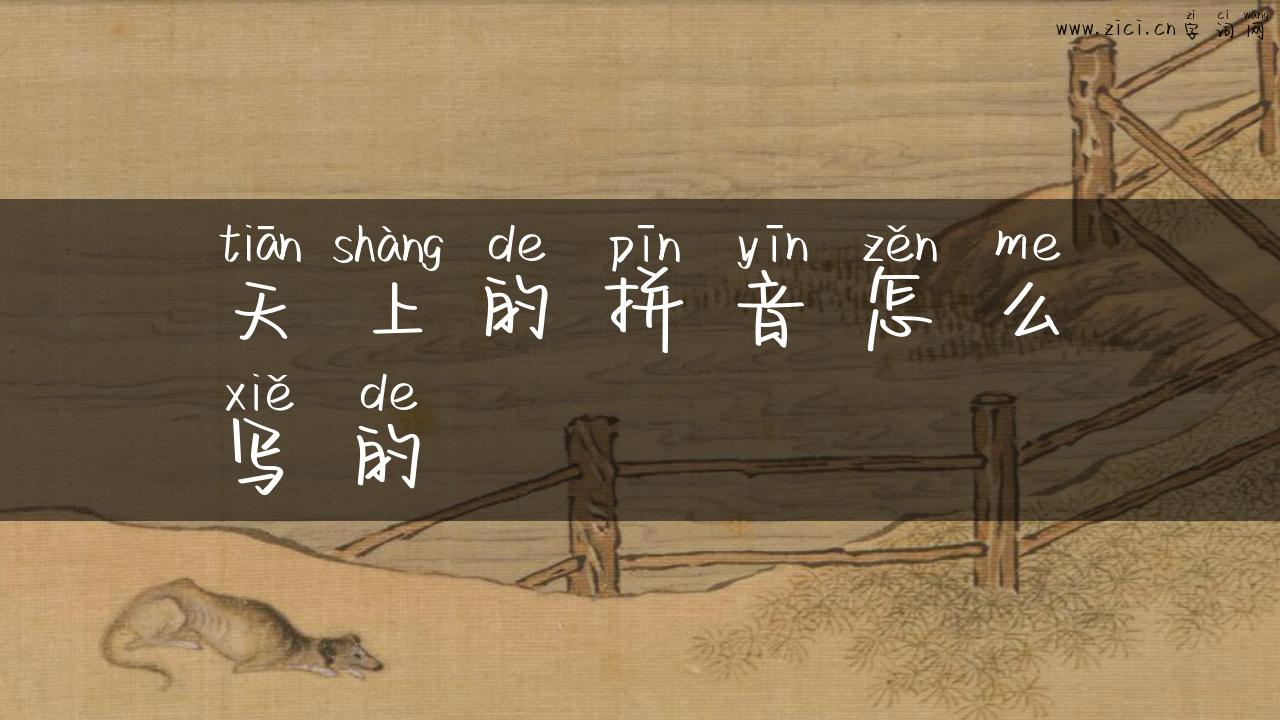 zi ci wang
www.zici.cn 字词网
tiān shàng de pīn yīn zěn me
天上的拼音怎么
xiě de
写的